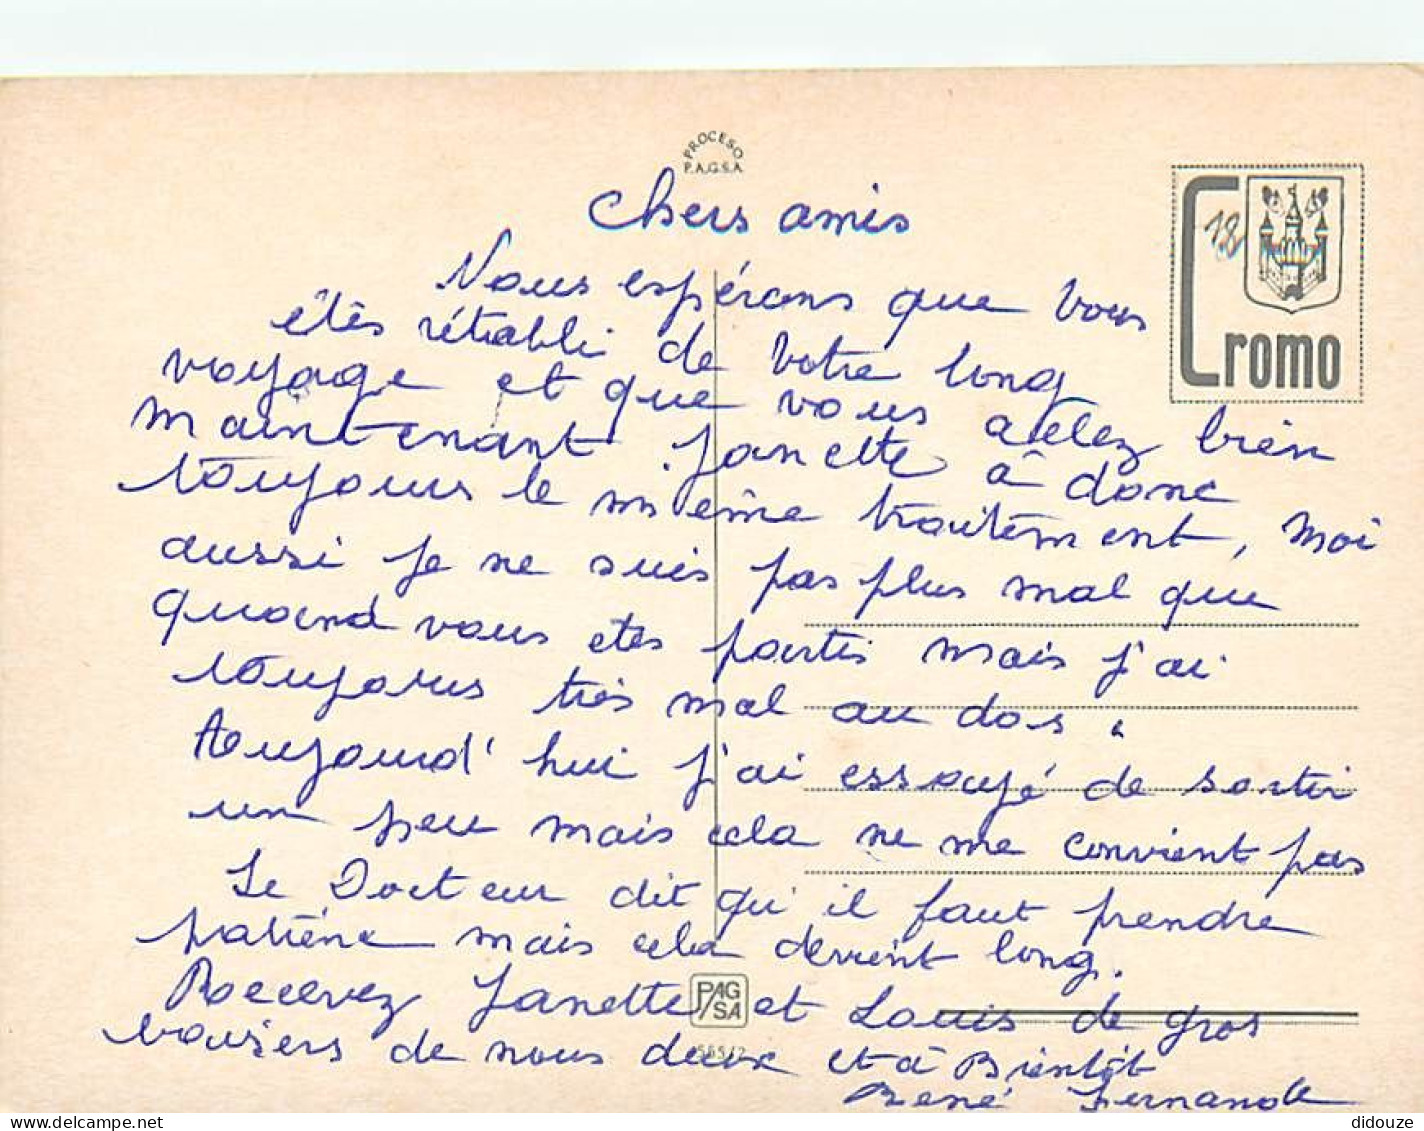 PROCESO
P.A.G.S.A.
Chers amis
18
Cromo
Nous espérons que vous
êtes rétabli de votre long
voyage et que vous allez bien
maintenant. Janette à donc
toujours le même traitement, moi
aussi je ne suis pas plus mal que
quand vous etes partis mais j'ai
toujours très mal au dos.
Aoujourd'hui j'ai essayé de sortir
un peu mais cela ne me convient pas
Le Docteur dit qu'il faut prendre
patiene mais cela devient long.
Recevez Janette et Louis de gros
baisers de nous deux et à Bientôt
René Fernande
PAG/SA
delcampe.net
didouze